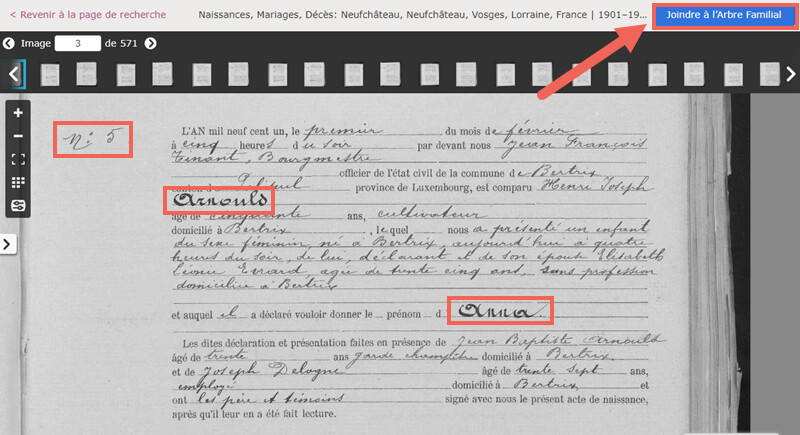 < Revenir à la page de recherche
Naissances, Mariages, Décès: Neufchâteau, Neufchâteau, Vosges, Lorraine, France | 1901–19...
Joindre à l'Arbre Familial
Image 3 de 571
N° 5
L'AN mil neuf cent un, le premier du mois de février
à cinq heures du soir par devant nous Jean François
Tinant, Bourgmestre
officier de l'état civil de la commune de Bertrix
canton de Paliseul province de Luxembourg, est comparu Henri Joseph
Arnould
âgé de cinquante ans, cultivateur
domicilié à Bertrix, lequel nous a présenté un enfant
du sexe féminin, né à Bertrix, aujourd'hui à quatre
heures du soir, de lui, déclarant et de son épouse Elisabeth
Léonie Evrard, agée de trente cinq ans, sans profession
domiciliée à Bertrix
et auquel il a déclaré vouloir donner le prénom d Anna.
Les dites déclaration et présentation faites en présence de Jean Baptiste Arnould
âgé de trente ans garde champêtre domicilié à Bertrix
et de Joseph Delogne âgé de trente sept ans,
employé domicilié à Bertrix et
ont les père et témoins signé avec nous le présent acte de naissance,
après qu'il leur en a été fait lecture.